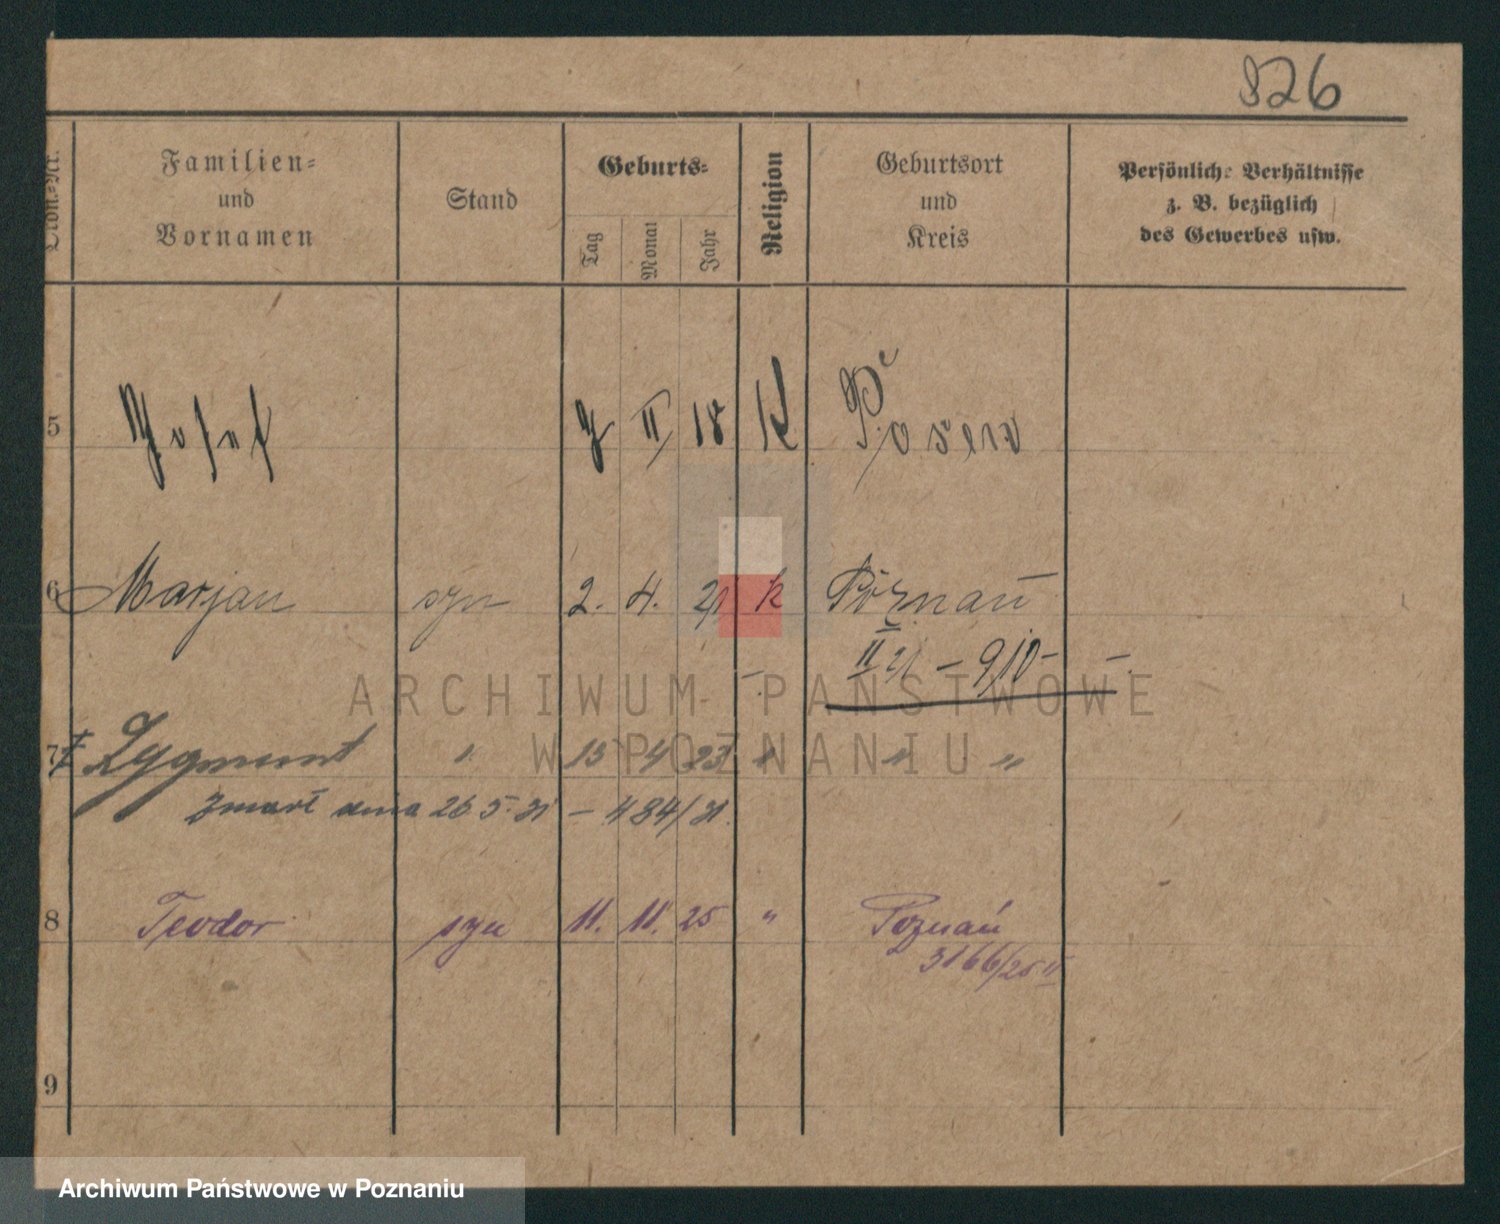 826
Familien=
und
Vornamen
Stand
Geburts=
Tag
Monat
Jahr
Religion
Geburtsort
und
Kreis
Persönliche Verhältnisse
z. B. bezüglich
des Gewerbes usw.
5 Josef II 18 K Posen
6 Marjan syn 2. 4. 21 k Poznań
II 21 – 910 –
7 Zygmunt 4 23 " "
zmarł dnia 26.5.31 – 484/31.
8 Teodor syn 11. 11. 25 " Poznań
3166/25 II
9
ARCHIWUM PAŃSTWOWE
W POZNANIU
Archiwum Państwowe w Poznaniu